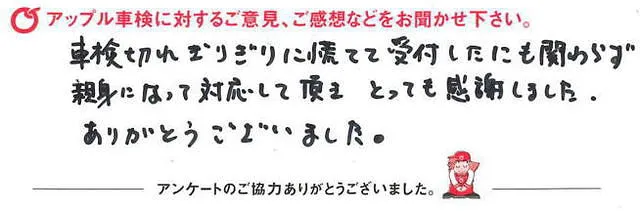 アップル車検に対するご意見、ご感想などをお聞かせ下さい。
車検切れぎりぎりに慌てて受付したにも関わらず
親身になって対応して頂き とっても感謝しました.
ありがとうございました。
アンケートのご協力ありがとうございました。